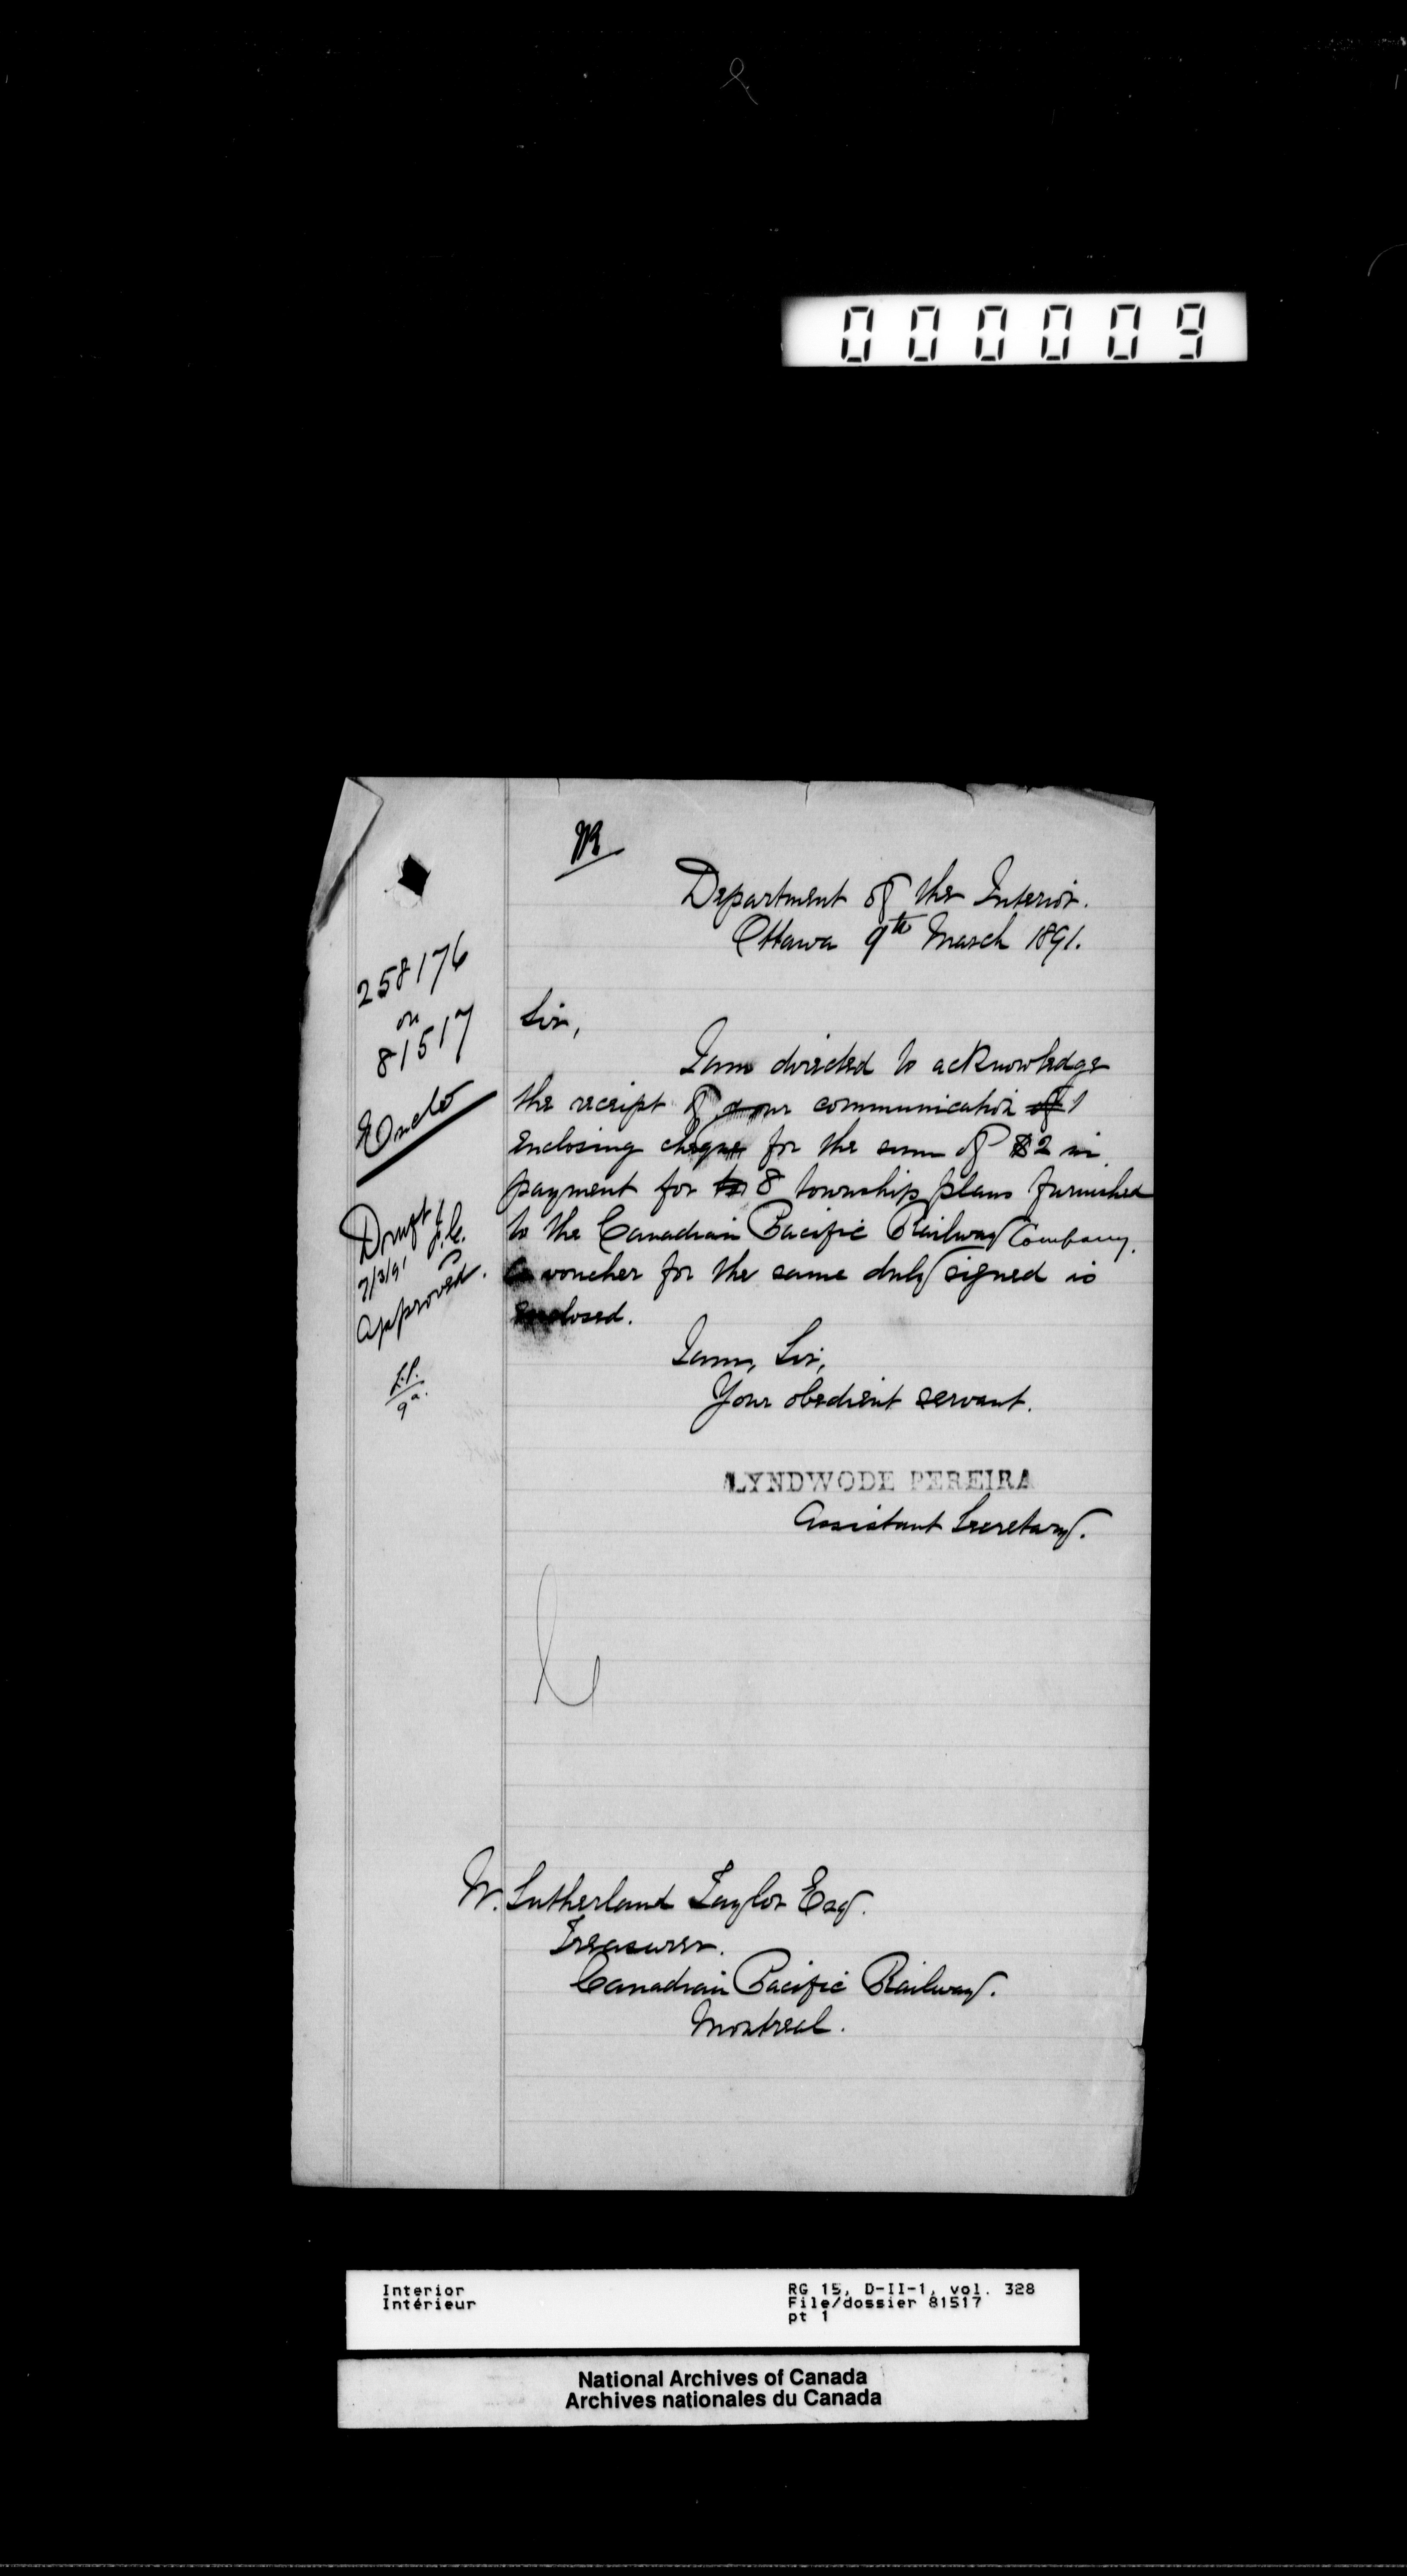 000009
Department of the Interior.
Ottawa 9th March 1891.
258176
on
81517
Sir,
I am directed to acknowledge
the receipt of your communication
enclosing cheque for the sum of $2 in
payment for 8 township plans furnished
to the Canadian Pacific Railway Company.
A voucher for the same duly signed is
enclosed.
Draft
7/3/91
approved.
I am, Sir,
Your obedient servant.
LYNDWODE PEREIRA
Assistant Secretary.
W. Sutherland Taylor Esq.
Treasurer.
Canadian Pacific Railway.
Montreal.
Interior
Intérieur
RG 15, D-II-1, vol. 328
File/dossier 81517
pt 1
National Archives of Canada
Archives nationales du Canada